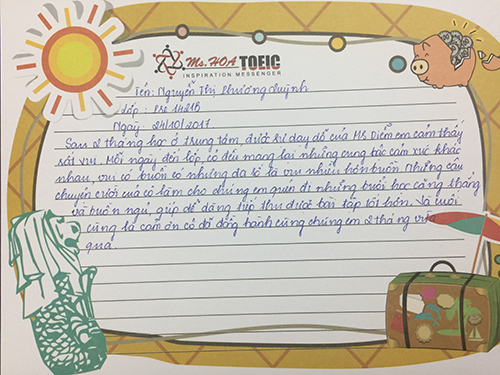 Ms.HOA TOEIC
INSPIRATION MESSENGER
Tên: Nguyễn Thị Phương Quỳnh
Lớp: Pre 1421B
Ngày: 24/10/2017
Sau 2 tháng học ở trung tâm, được sự dạy dỗ của Ms Diễm em cảm thấy
rất vui. Mỗi ngày đến lớp, cô đều mang lại những cung bậc cảm xúc khác
nhau, vui có buồn có nhưng đa số là vui nhiều hơn buồn. Những câu
chuyện cười của cô làm cho chúng em quên đi những buổi học căng thẳng
và buồn ngủ, giúp dễ dàng tiếp thu được bài tập tốt hơn. Và cuối
cùng là cảm ơn cô đã đồng hành cùng chúng em 2 tháng vừa
qua.